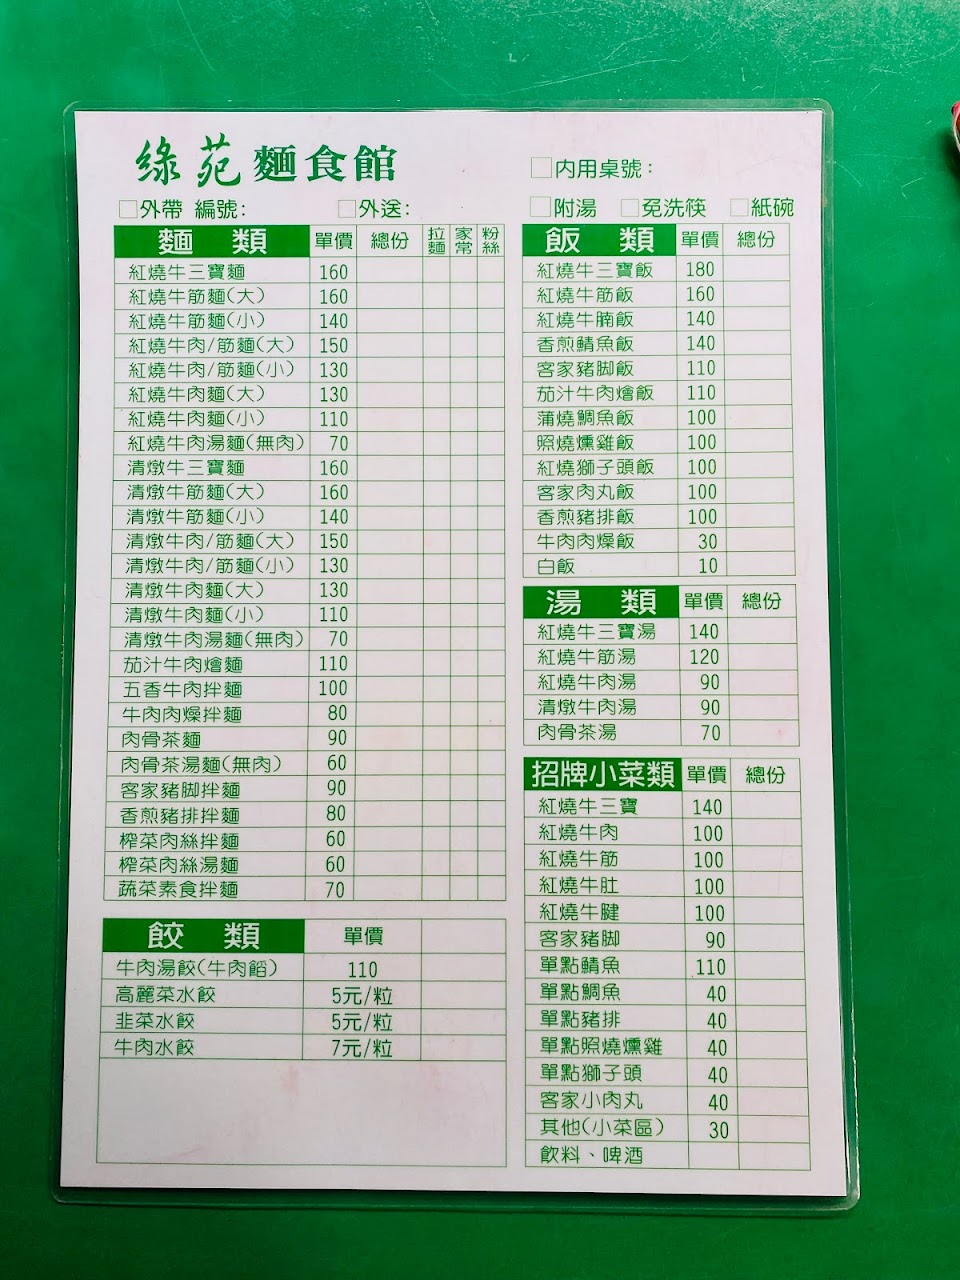 綠苑麵食館
□內用桌號：
□外帶 編號： □外送：
□附湯 □免洗筷 □紙碗
麵類 單價 總份 拉麵 家常 粉絲
紅燒牛三寶麵 160
紅燒牛筋麵(大) 160
紅燒牛筋麵(小) 140
紅燒牛肉/筋麵(大) 150
紅燒牛肉/筋麵(小) 130
紅燒牛肉麵(大) 130
紅燒牛肉麵(小) 110
紅燒牛肉湯麵(無肉) 70
清燉牛三寶麵 160
清燉牛筋麵(大) 160
清燉牛筋麵(小) 140
清燉牛肉/筋麵(大) 150
清燉牛肉/筋麵(小) 130
清燉牛肉麵(大) 130
清燉牛肉麵(小) 110
清燉牛肉湯麵(無肉) 70
茄汁牛肉燴麵 110
五香牛肉拌麵 100
牛肉肉燥拌麵 80
肉骨茶麵 90
肉骨茶湯麵(無肉) 60
客家豬脚拌麵 90
香煎豬排拌麵 80
榨菜肉絲拌麵 60
榨菜肉絲湯麵 60
蔬菜素食拌麵 70
餃類 單價
牛肉湯餃(牛肉餡) 110
高麗菜水餃 5元/粒
韭菜水餃 5元/粒
牛肉水餃 7元/粒
飯類 單價 總份
紅燒牛三寶飯 180
紅燒牛筋飯 160
紅燒牛腩飯 140
香煎鯖魚飯 140
客家豬脚飯 110
茄汁牛肉燴飯 110
蒲燒鯛魚飯 100
照燒燻雞飯 100
紅燒獅子頭飯 100
客家肉丸飯 100
香煎豬排飯 100
牛肉肉燥飯 30
白飯 10
湯類 單價 總份
紅燒牛三寶湯 140
紅燒牛筋湯 120
紅燒牛肉湯 90
清燉牛肉湯 90
肉骨茶湯 70
招牌小菜類 單價 總份
紅燒牛三寶 140
紅燒牛肉 100
紅燒牛筋 100
紅燒牛肚 100
紅燒牛腱 100
客家豬脚 90
單點鯖魚 110
單點鯛魚 40
單點豬排 40
單點照燒燻雞 40
單點獅子頭 40
客家小肉丸 40
其他(小菜區) 30
飲料、啤酒